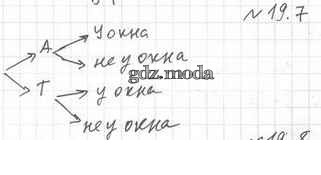 № 19.7
А
У окна
не у окна
gdz.moda
Т
у окна
не у окна